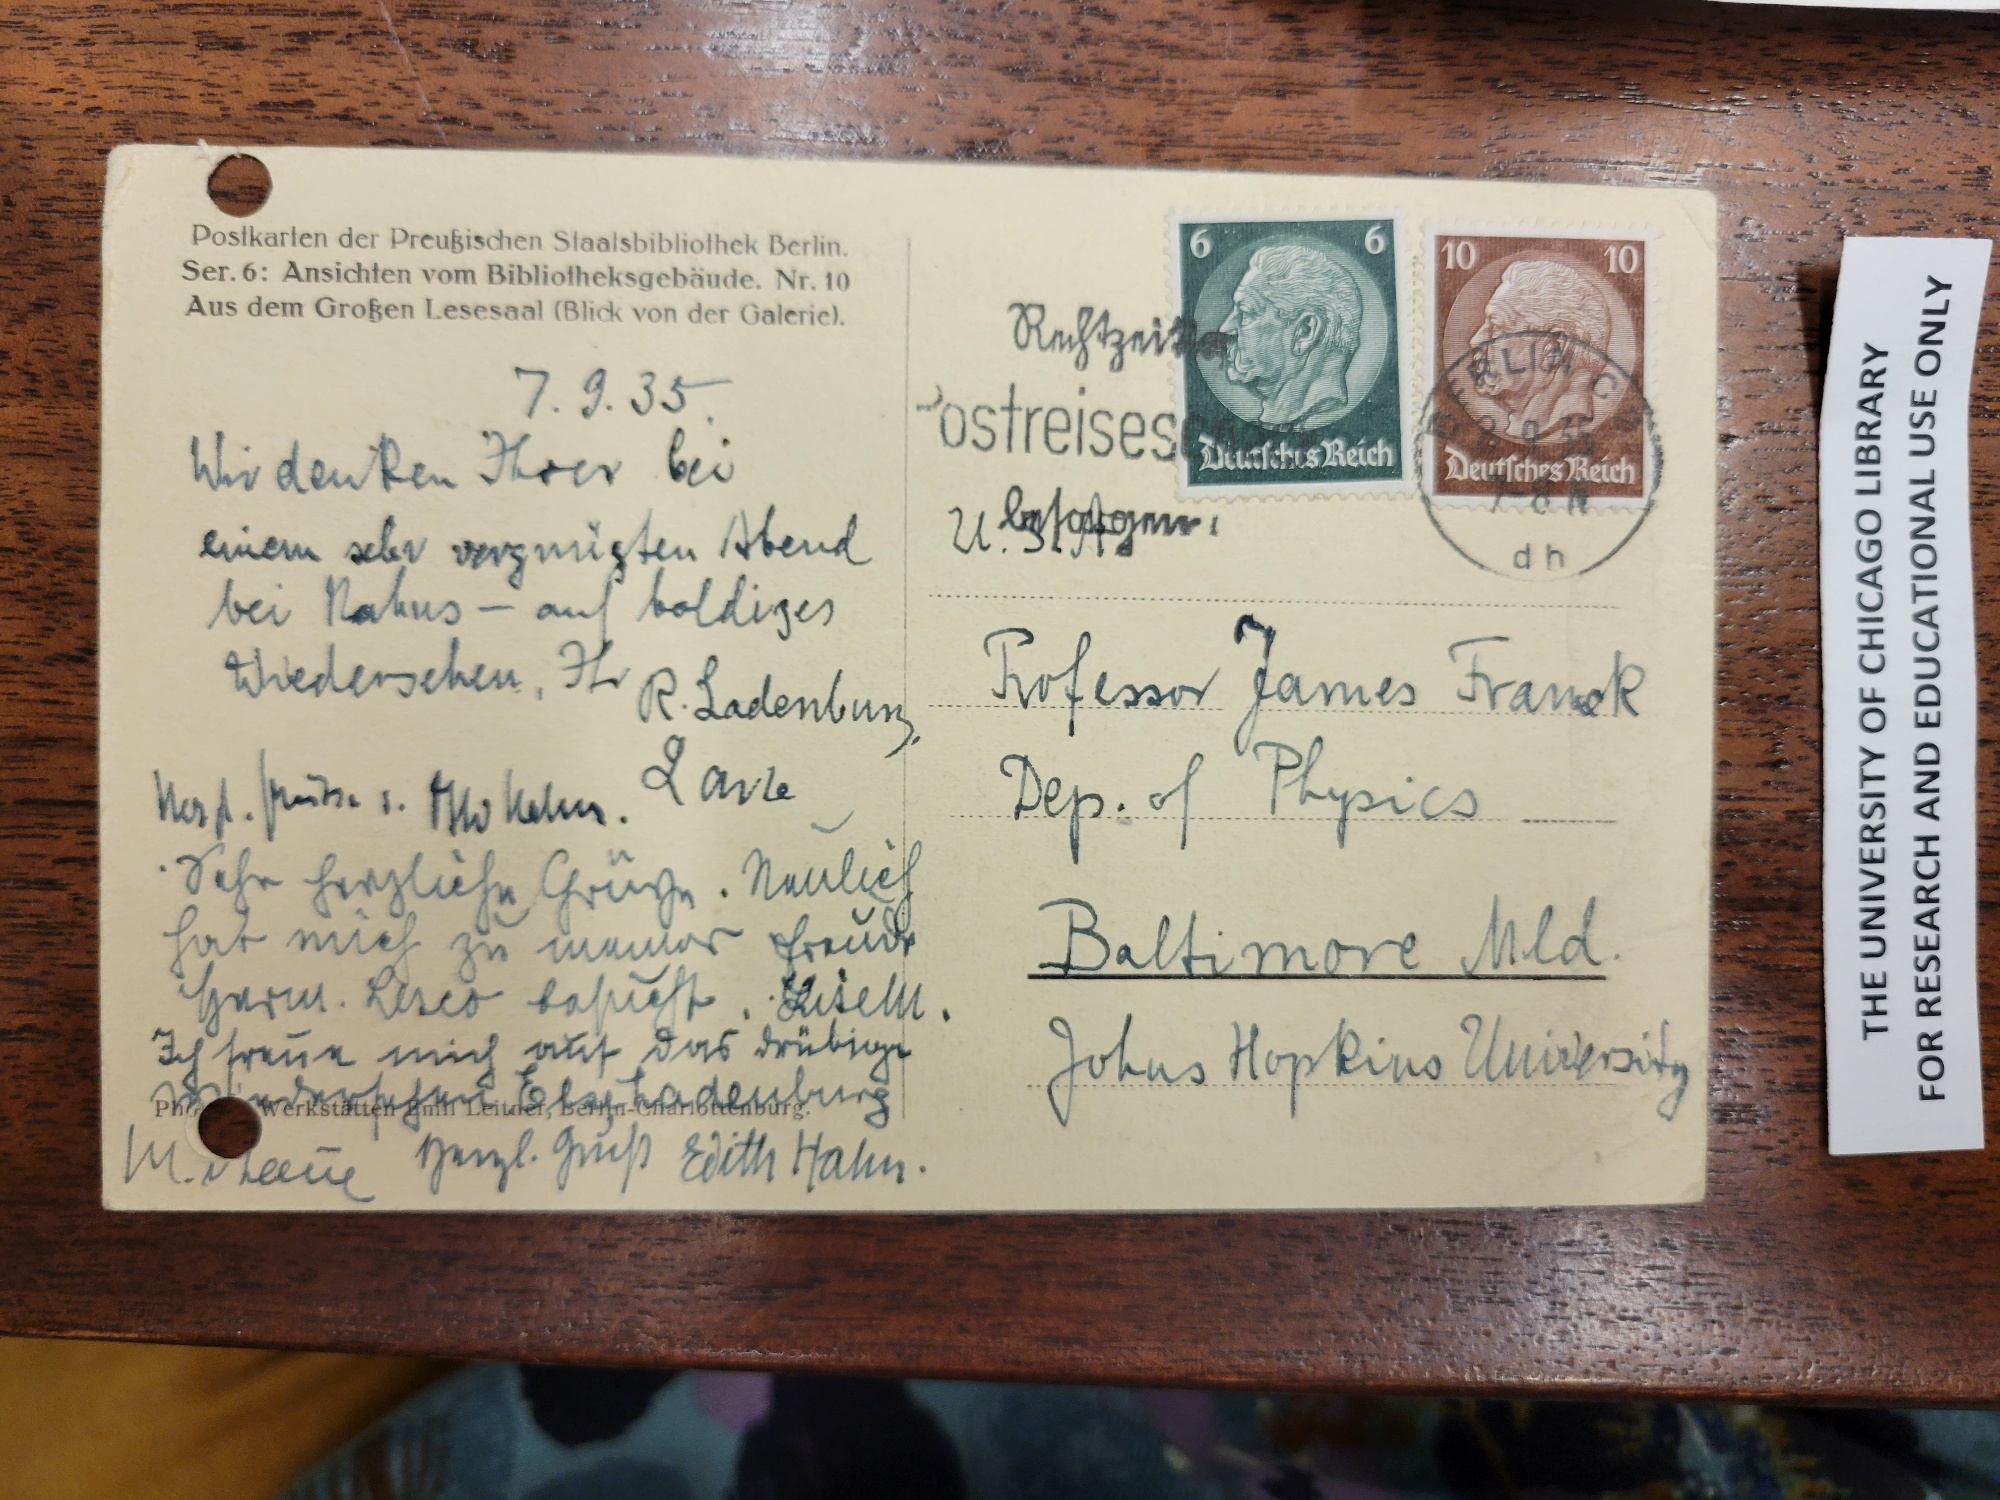 Postkarten der Preußischen Staatsbibliothek Berlin.
Ser. 6: Ansichten vom Bibliotheksgebäude. Nr. 10
Aus dem Großen Lesesaal (Blick von der Galerie).
7. 9. 35.
Wir denken Ihrer bei
einem sehr vergnügten Abend
bei Hahns – auf baldiges
Wiedersehen, Ihr R. Ladenburg,
Laue
Herzl. Grüße i. Otto Hahn.
Sehr herzliche Grüße. Neulich
hat mich zu meiner Freude
Herm. besucht. Lisem.
Ich freue mich auf das drübige
Wiedersehen Else Ladenburg
Werkstätten Emil Leitner, Berlin-Charlottenburg.
M. v Laue Herzl. Gruß Edith Hahn.
6 6
Deutsches Reich
10 10
Deutsches Reich
Rechtzeitig
Postreisesch
besorgen!
BERLIN C 2
8. 9. 35
7-8 N
dh
U.S.A.
Professor James Franck
Dep. of Physics
Baltimore Mld.
Johns Hopkins University
THE UNIVERSITY OF CHICAGO LIBRARY
FOR RESEARCH AND EDUCATIONAL USE ONLY